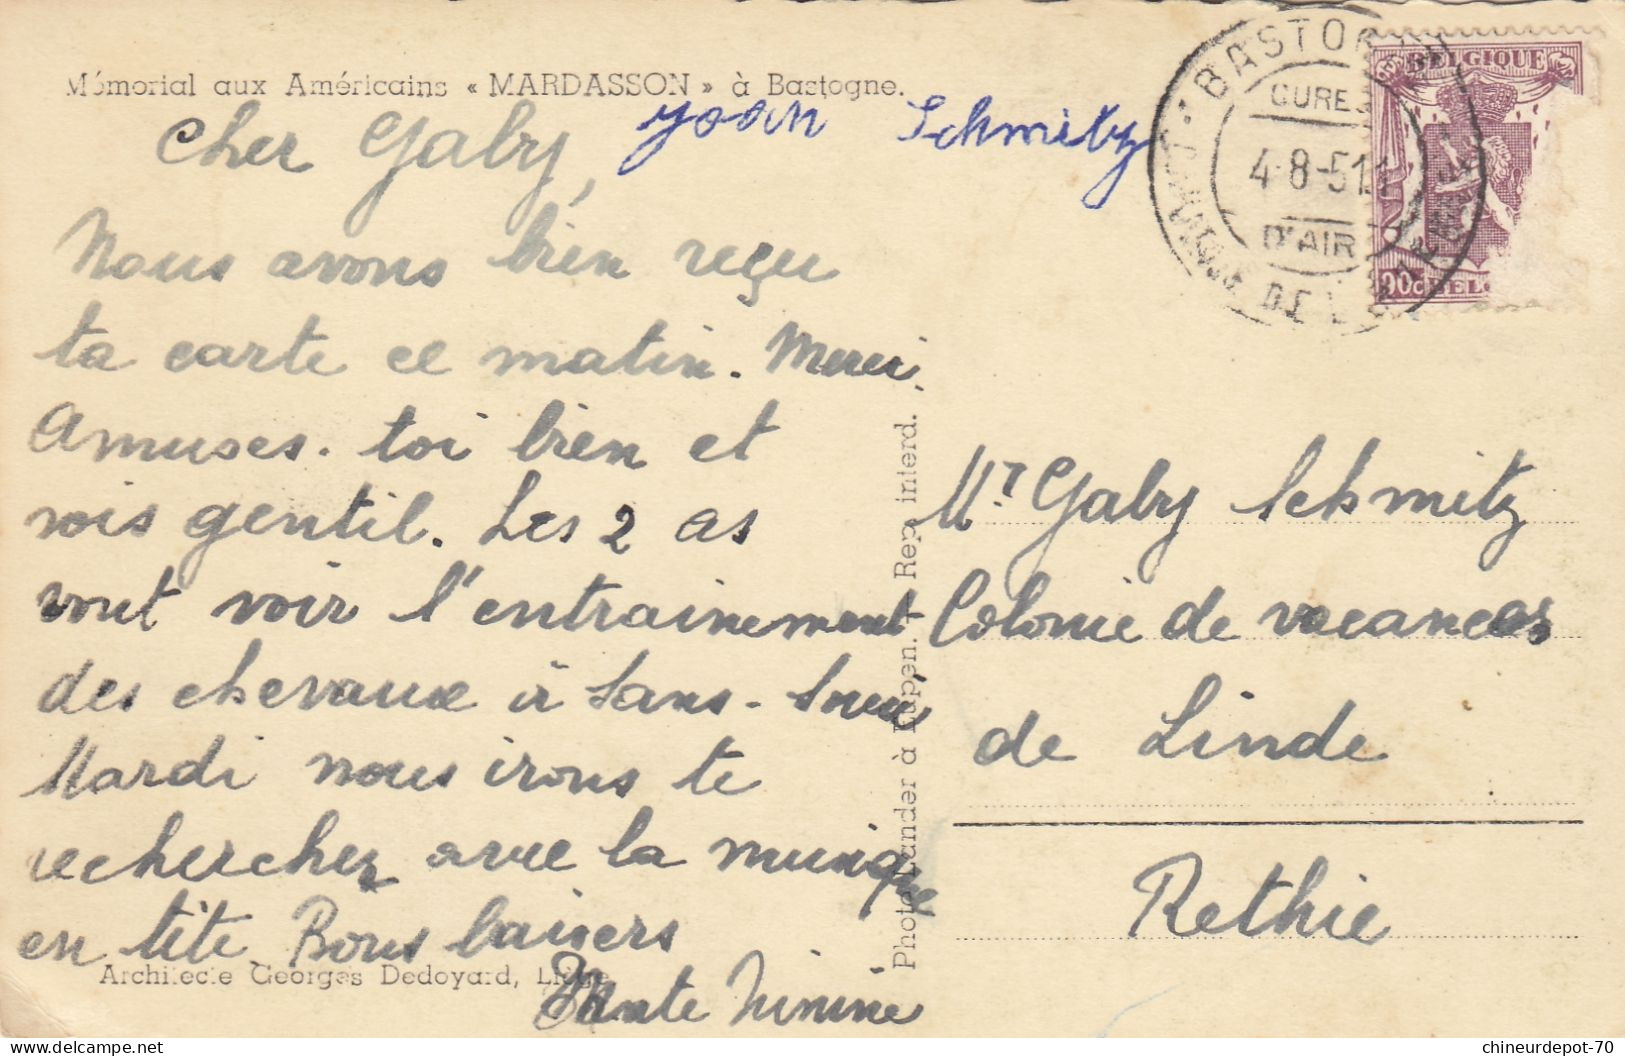 Mémorial aux Américains « MARDASSON » à Bastogne.
Cher Gaby,
yoan Schmitz
Nous avons bien reçu
ta carte ce matin. Merci.
Amuses-toi bien et
sois gentil. Les 2 as
vont voir l'entrainement
des chevaux à Sans-Souci
Mardi nous irons te
rechercher avec la musique
en tête. Bons baisers
Tante Ninine
Architecte Georges Dedoyard, Liège
Photo Lander à Eupen. + Rep. interd.
BASTOGNE
CURES
4-8-51
D'AIR
BELGIQUE
90c BELG
Mr Gaby Schmitz
Colonie de vacances
de Linde
Rethie
chineurdepot-70